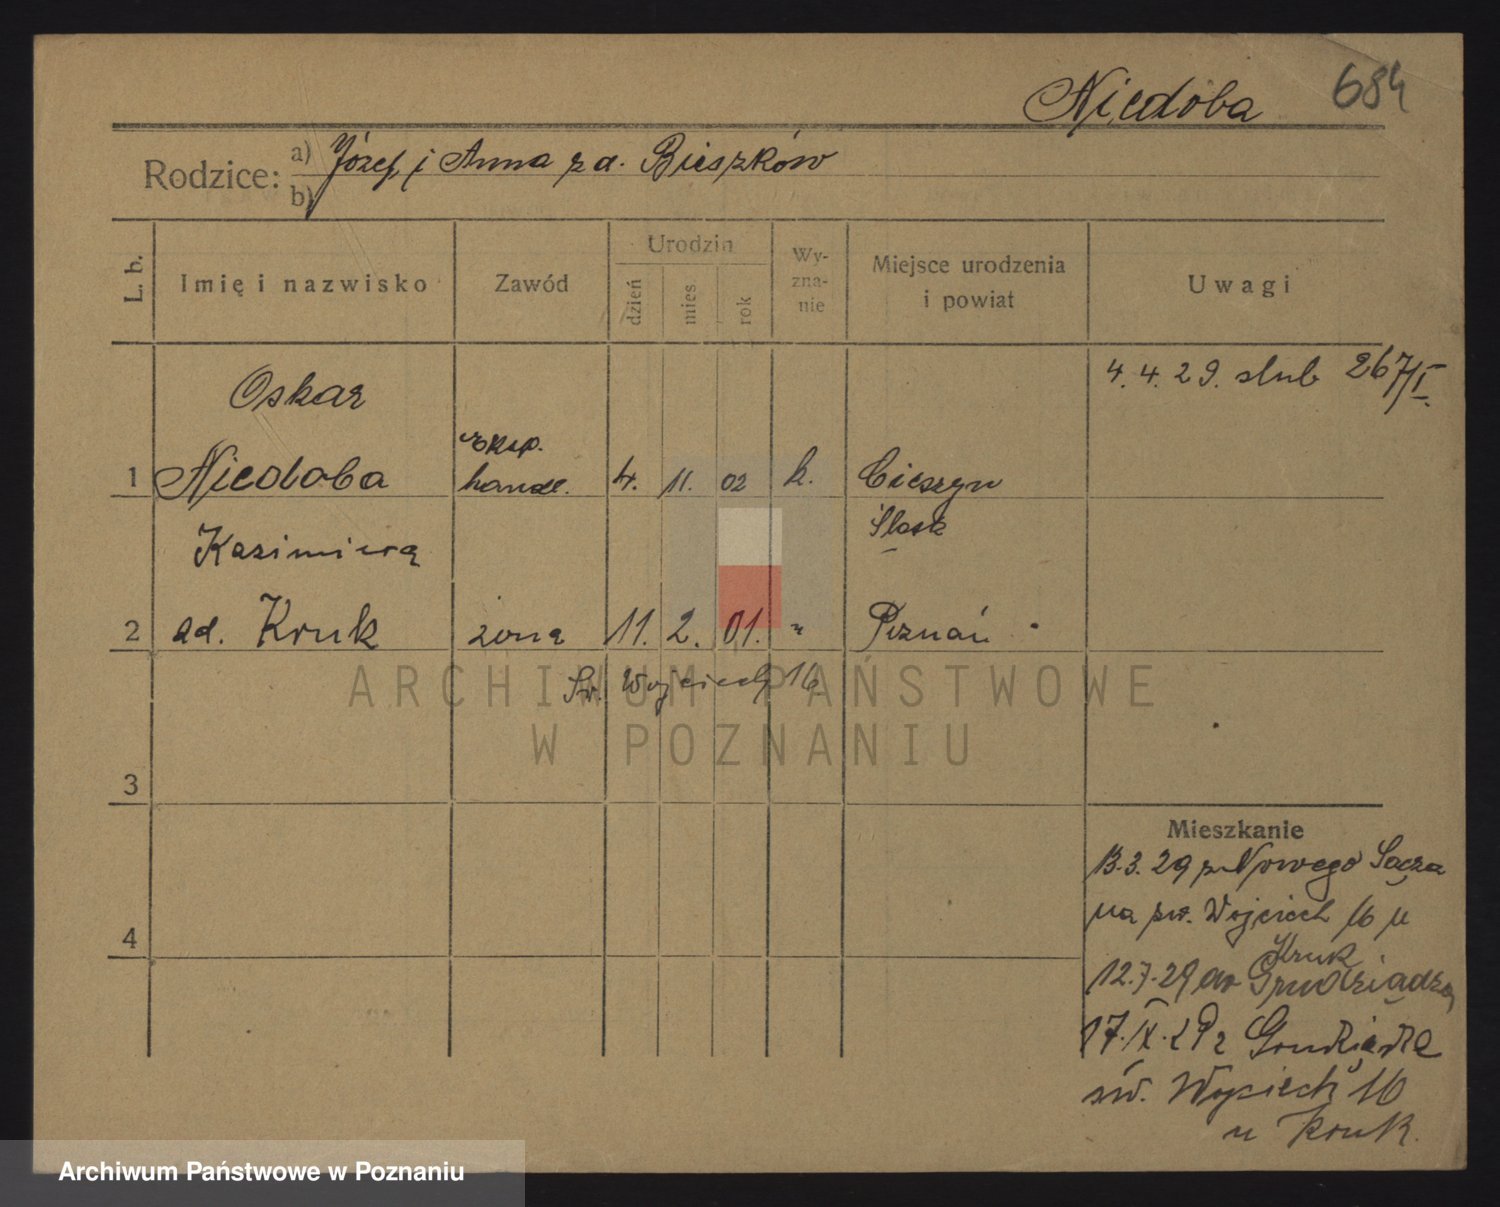 Niedoba 684
Rodzice: a) Józef i Anna z d. Bieszków
b)
L. b.
Imię i nazwisko
Zawód
Urodzin
dzień
mies
rok
Wy-
zna-
nie
Miejsce urodzenia
i powiat
Uwagi
4. 4. 29. slub 267/I.
Oskar
eksp.
1 Niedoba handl. 4. 11. 02 k. Cieszyn
Śląsk
Kazimiera
2 zd. Kruk żona 11. 2. 01. " Poznań
Św. Wojciech 16
3
4
Mieszkanie
13.3.29 z Nowego Sącza
na św. Wojciech 16 u
Kruk
12.7.29 do Grudziądza
17.IX.29 z Grudziądza
św. Wojciech 16
u Kruk.
ARCHIWUM PAŃSTWOWE
W POZNANIU
Archiwum Państwowe w Poznaniu